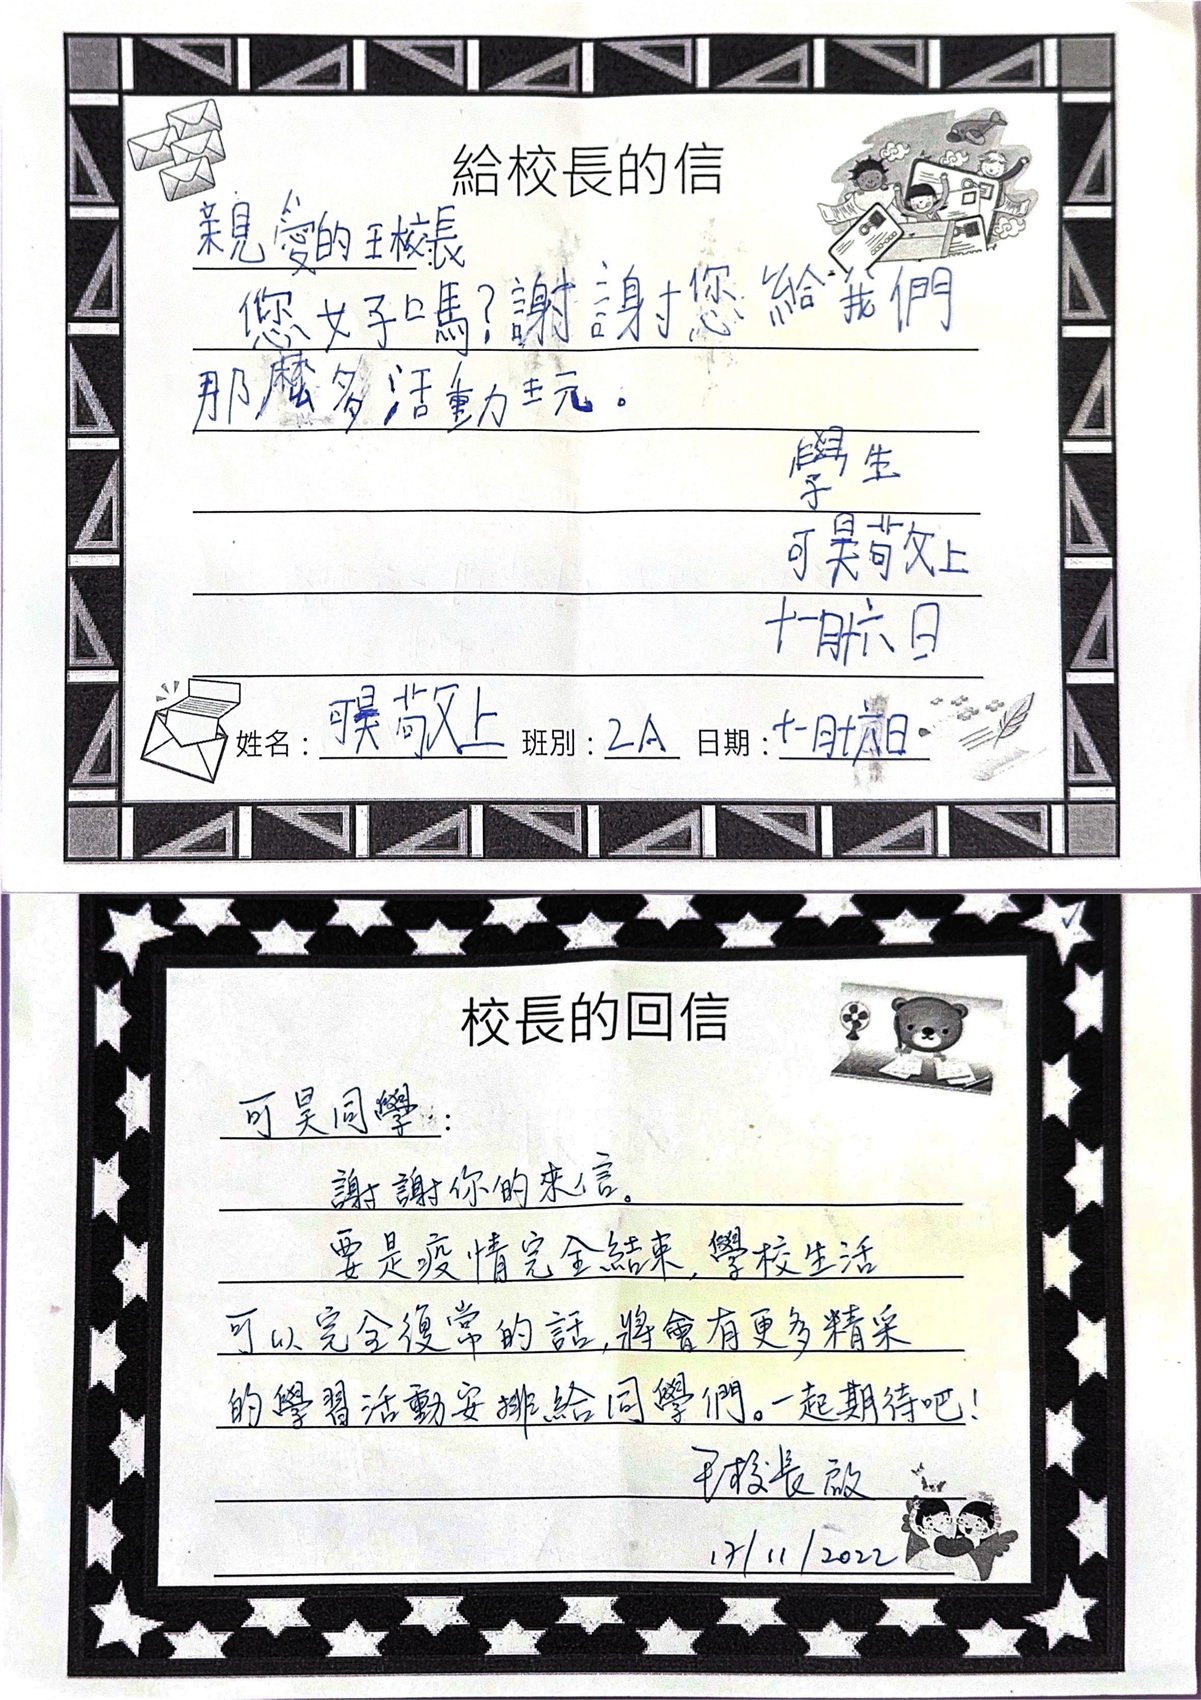 給校長的信
親愛的王校長
您好嗎?謝謝您給我們
那麼多活動玩。
學生
可昊敬上
十一月十六日
姓名：可昊敬上 班別：2A 日期：十一月十六日
校長的回信
可昊同學：
謝謝你的來信。
要是疫情完全結束,學校生活
可以完全復常的話,將會有更多精采
的學習活動安排給同學們。一起期待吧!
王校長啟
17/11/2022